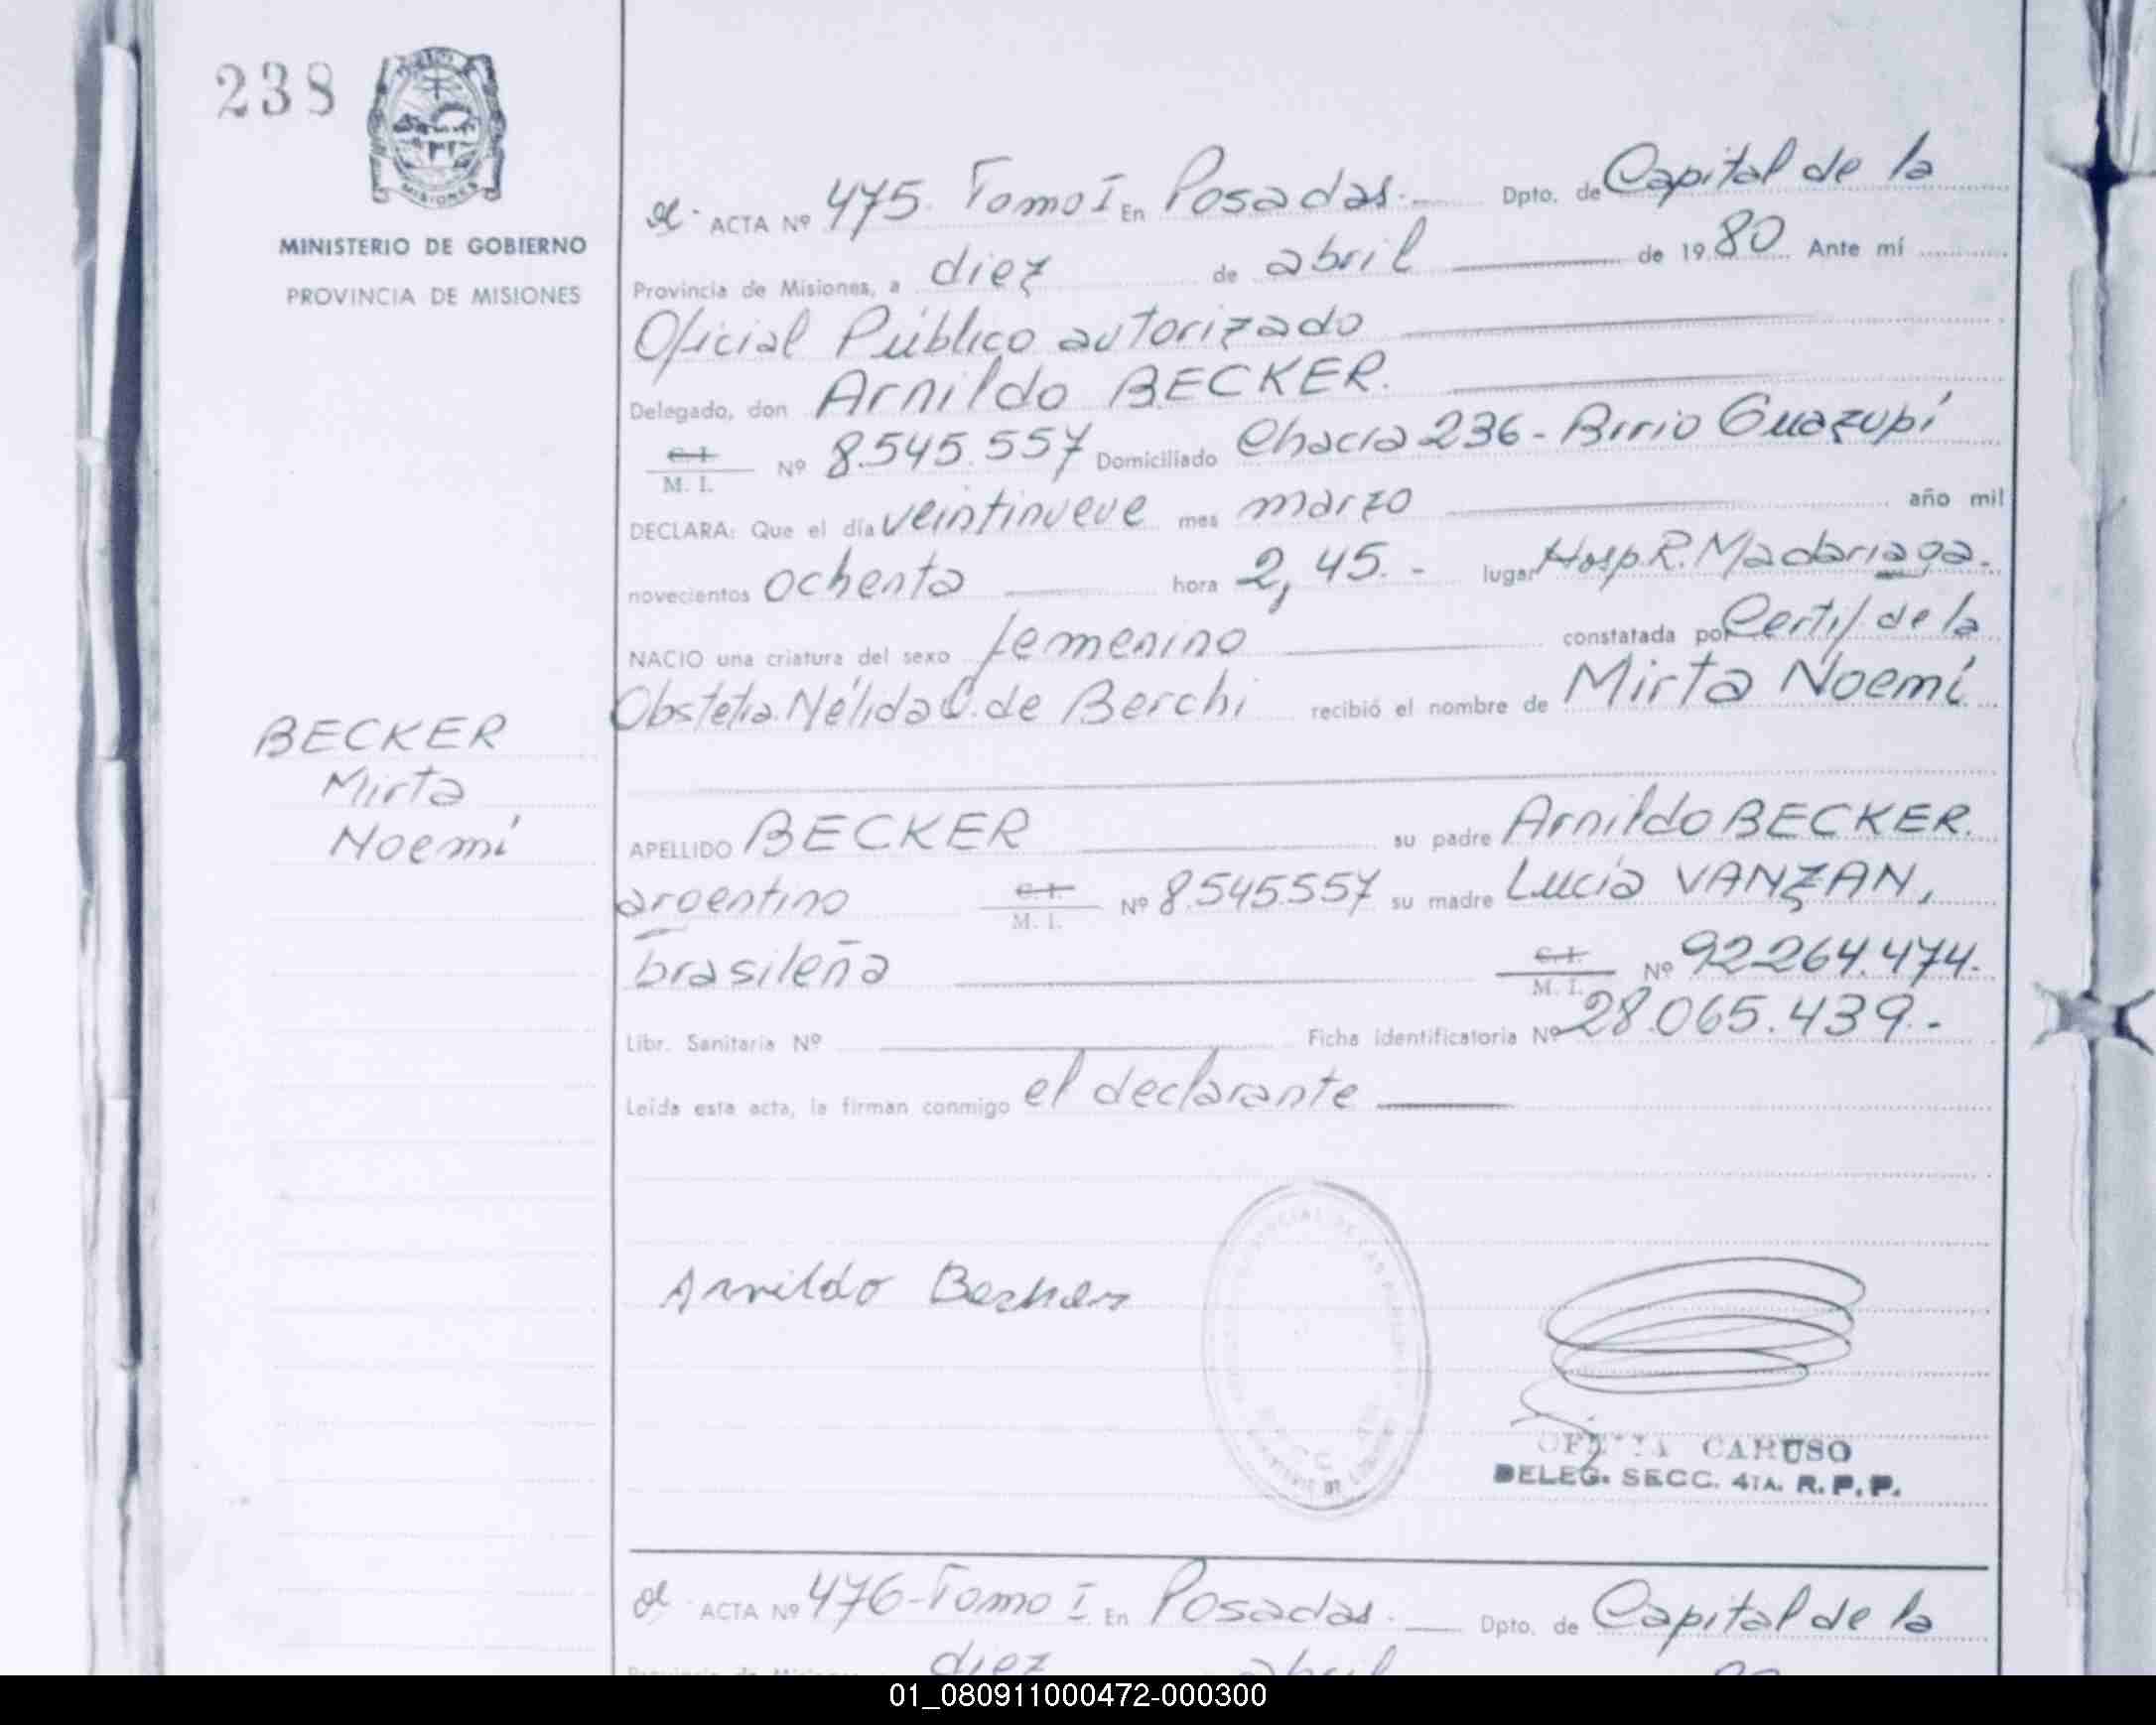 238
MISIONES
MINISTERIO DE GOBIERNO
PROVINCIA DE MISIONES
BECKER
Mirta
Noemí
ACTA Nº 475. Tomo I En Posadas.- Dpto. de Capital de la
Provincia de Misiones, a diez de abril de 1980 Ante mí
Oficial Público autorizado
Delegado, don Arnildo BECKER.
C.I. M. I. Nº 8.545.557 Domiciliado Chacra 236 - Brrio Guazupí
DECLARA: Que el día veintinueve mes marzo año mil
novecientos ochenta hora 2,45.- lugar Hosp R. Madariaga.
NACIO una criatura del sexo femenino constatada por Certif de la
Obstetra. Nélida C. de Berchi recibió el nombre de Mirta Noemí
APELLIDO BECKER su padre Arnildo BECKER.
argentino C.I. M. I. Nº 8.545.557 su madre Lucia VANZAN,
brasileña C.I. M. I. Nº 92.264.474.
Libr. Sanitaria Nº Ficha identificatoria Nº 28.065.439.-
Leída esta acta, la firman conmigo el declarante
Arnildo Becker
CARUSO
DELEG. SECC. 4TA. R. P. P.
ACTA Nº 476 - Tomo I En Posadas. Dpto. de Capital de la
diez abril
01_080911000472-000300